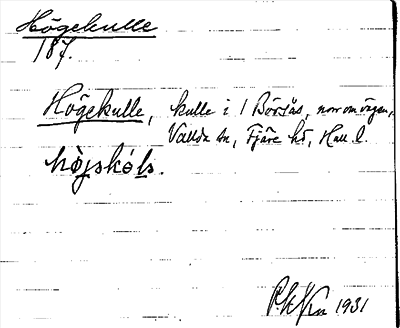 Högekulle
187.
Högekulle, kulle i 1 Börsås, norr om vägen,
Vallda sn, Fjäre hd, Hall. l.
1931